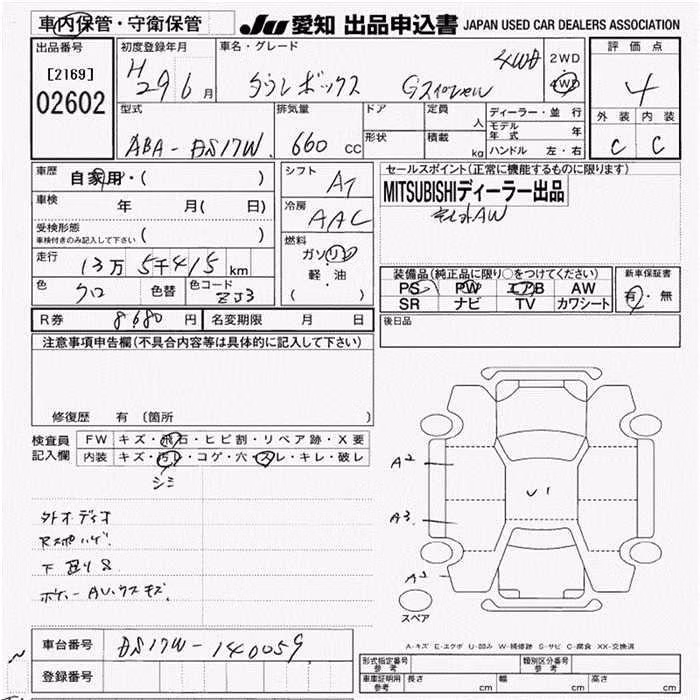 車内保管・守衛保管
JU 愛知 出品申込書 JAPAN USED CAR DEALERS ASSOCIATION
出品番号 初度登録年月 車名・グレード 評価点
[2169] H29 6月 4WD 2WD 4WD 4
02602 タウンボックス G
外装 内装
型式 排気量 ドア 定員 人 ディーラー・並行
形状 積載 kg モデル年式 年
ABA-DS17W. 660 CC ハンドル 左・右 C C
車歴 自家用・( ) シフト AT セールスポイント(正常に機能するものに限ります)
MITSUBISHIディーラー出品
車検 年 月( 日) 冷房 AAC AW
受検形態
車検付きのみ記入して下さい ( )
燃料 ガソリン・軽・油 ( )
走行 13万5千415km
装備品(純正品に限り○をつけてください) 新車保証書
色 クロ 色替 色コード ZJ3 PS PW エアB AW 有・無
SR ナビ TV カワシート
R券 8680円 名変期限 月 日 後日品
注意事項申告欄(不具合内容等は具体的に記入して下さい)
修復歴 有 (箇所
検査員 FW キズ・飛石・ヒビ割・リペア跡・X要
記入欄 内装 キズ・汚レ・コゲ・穴・スレ・キレ・破レ
シミ
A2
U1
外オーディオ A3
Rスポハゲ
下回りS A2
ボディーAUウスキズ.
スペア
車台番号 DS17W-140059 A-キズ E-エクボ U-凹み W-補修跡 S-サビ C-腐食 XX-交換済
形式指定番号 参考 類別区分番号 参考
登録番号 車庫証明用 参考 長さ cm 幅 cm 高さ cm